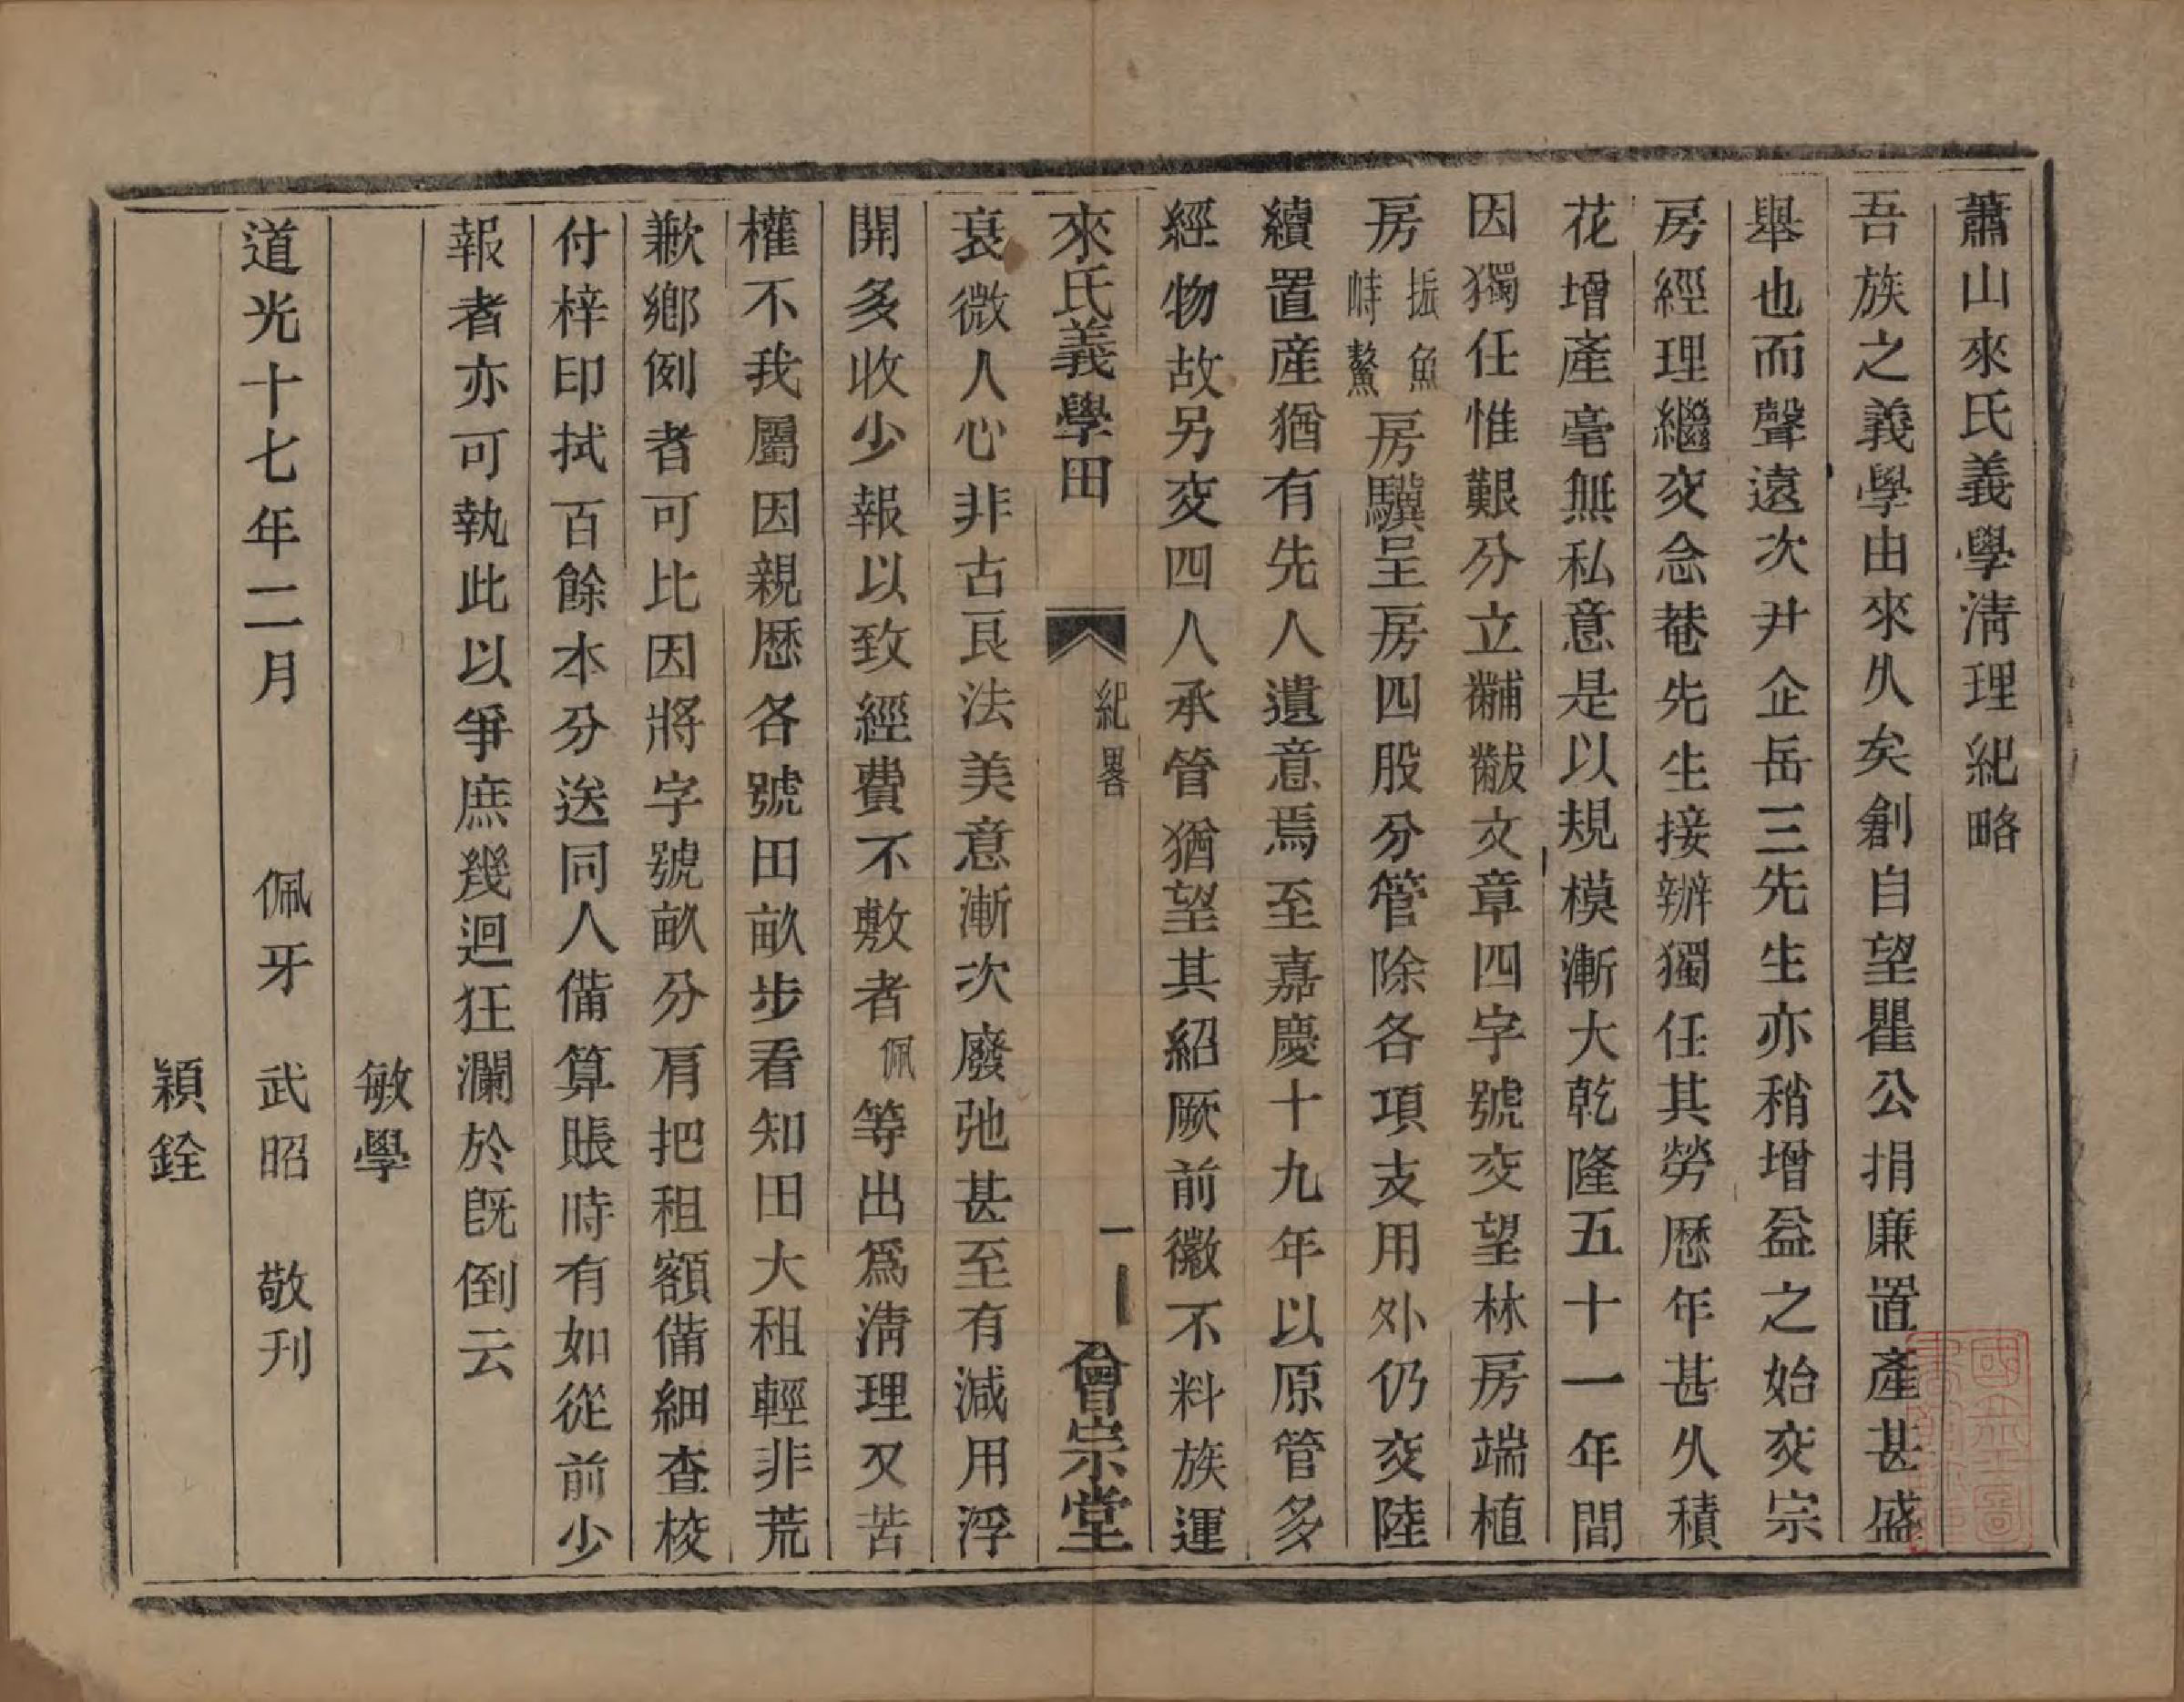 蕭山來氏義學淸理紀略
吾族之義學由來久矣創自望瞿公捐廉置產甚盛
舉也而聲遠次尹企岳三先生亦稍增益之始交宗
房經理繼交念菴先生接辦獨任其勞歷年甚久積
花增產毫無私意是以規模漸大乾隆五十一年間
因獨任惟艱分立黼黻文章四字號交望林房端植
房振魚峙鰲房驥呈房四股分管除各項支用外仍交陸
續置產猶有先人遺意焉至嘉慶十九年以原管多
經物故另交四人承管猶望其紹厥前徽不料族運
來氏義學田 紀畧 一 會宗堂
衰微人心非古良法美意漸次廢弛甚至有減用浮
開多收少報以致經費不敷者佩等出爲淸理又苦
權不我屬因親歷各號田畝步看知田大租輕非荒
歉鄉例者可比因將字號畝分肩把租額備細查校
付梓印拭百餘本分送同人備算賬時有如從前少
報者亦可執此以爭庶幾迴狂瀾於旣倒云
敏學
道光十七年二月 佩牙 武昭 敬刊
穎銓